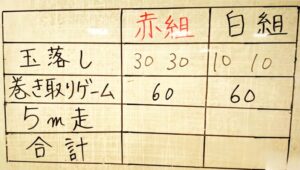 赤組 白組
玉落し 30 30 10 10
巻き取りゲーム 60 60
5m走
合計